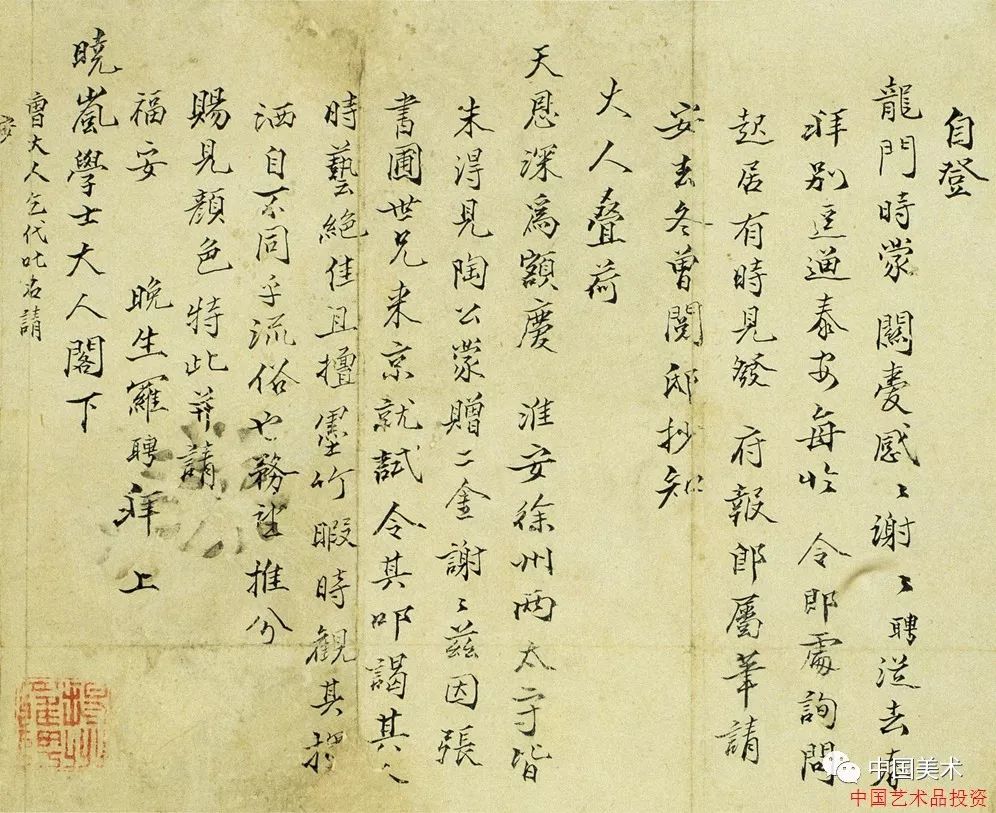 自登
龍門時蒙 關愛感〻謝〻聘從去春
拜別逕過泰安每於 令郎處詢問
起居有時見發 府報即屬筆請
安去冬曾閱邸抄知
大人叠荷
天恩深爲額慶 淮安徐州兩太守皆
未得見陶公蒙贈二金謝〻茲因張
書圃世兄来京就試令其叩謁其人
時藝絕佳且擅墨竹暇時觀其揮
洒自不同乎流俗也務望推分
賜見顔色特此并請
福安 晚生羅聘拜上
曉嵐學士大人閣下
曹大人乞代叱名請
安
中国美术
中国艺术品投资